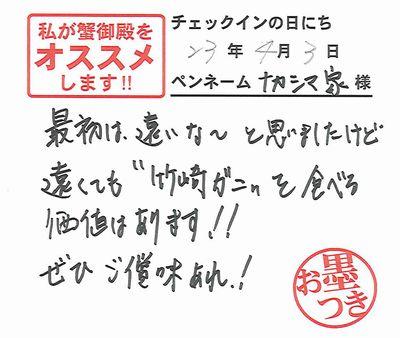 私が蟹御殿を
オススメ
します!!
チェックインの日にち
23年4月3日
ペンネーム ナカシマ家 様
最初は、遠いな〜と思いましたけど
遠くても"竹崎ガニ"を食べる
価値はあります!!
ぜひご償味あれ!
お墨つき